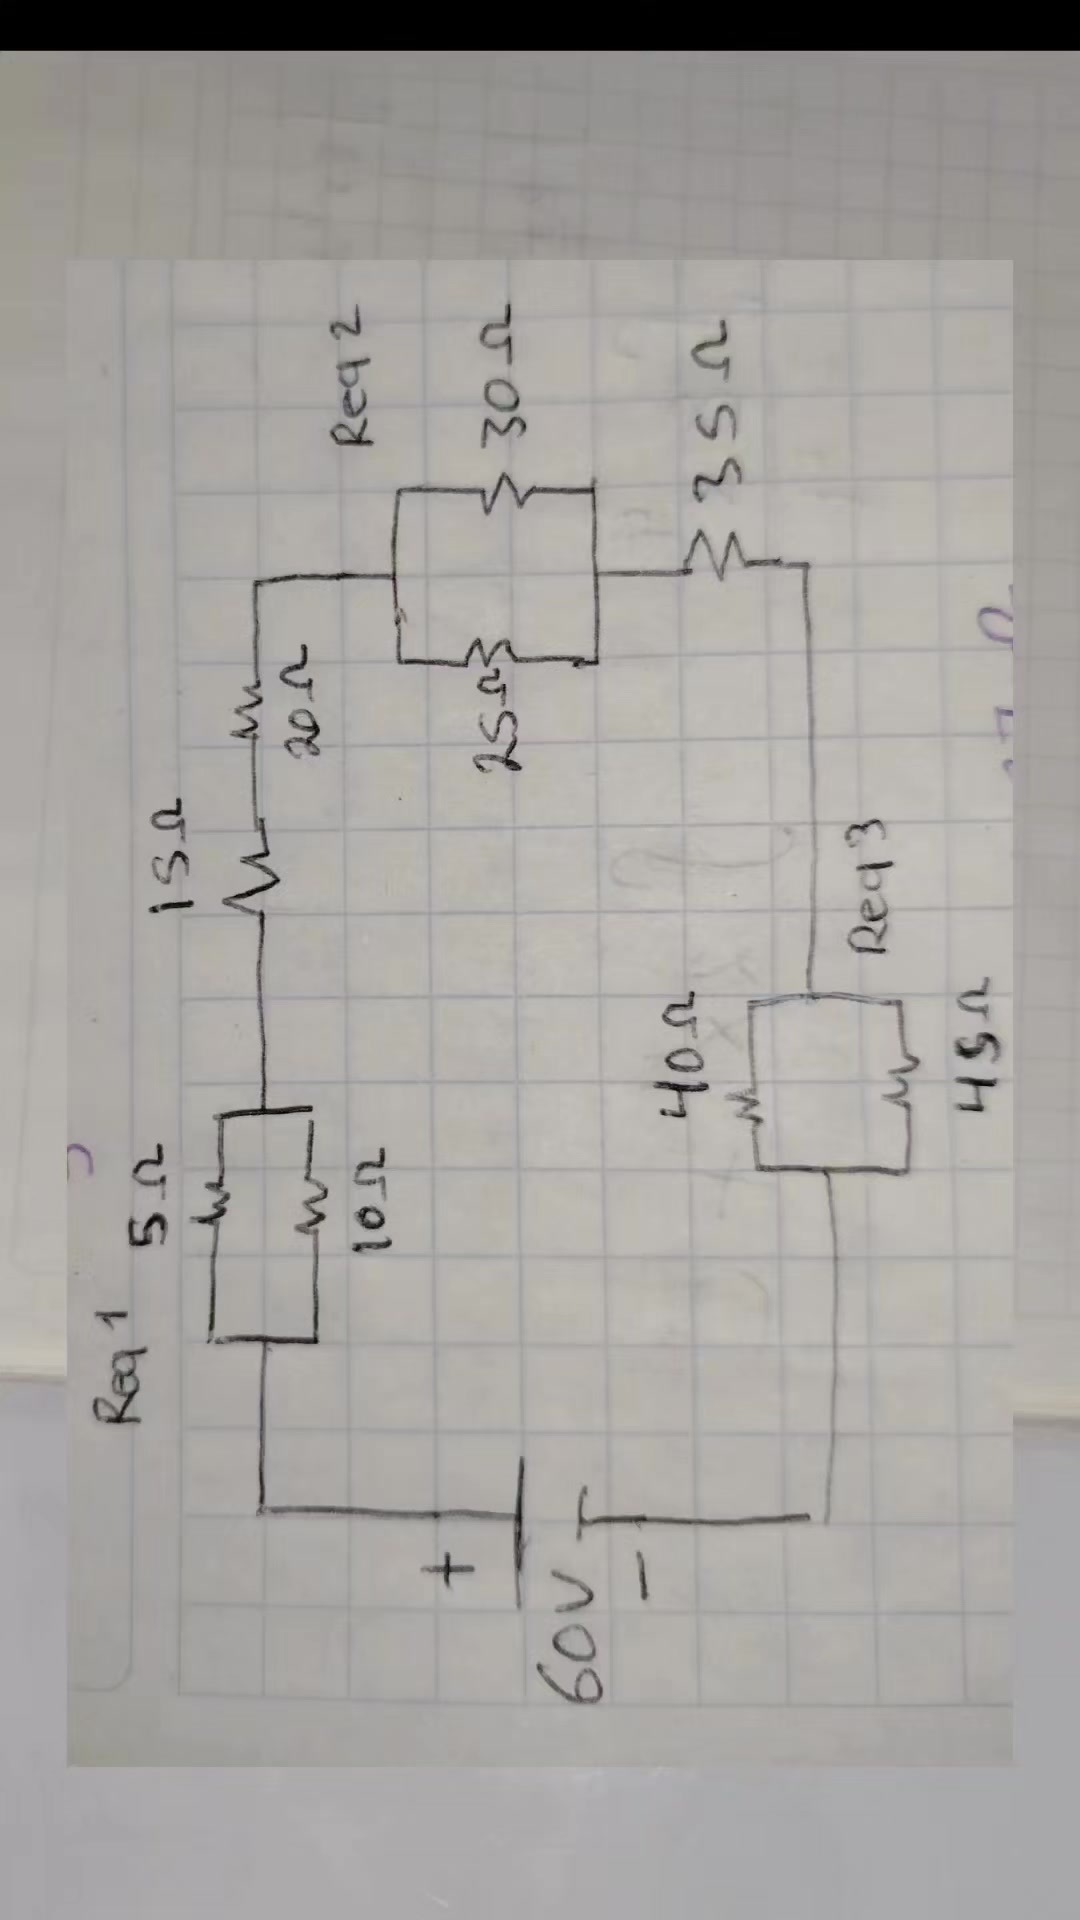 Req 1
5Ω
10Ω
15Ω
20Ω
Req 2
30Ω
25Ω
35Ω
Req 3
40Ω
45Ω
+
60V
-